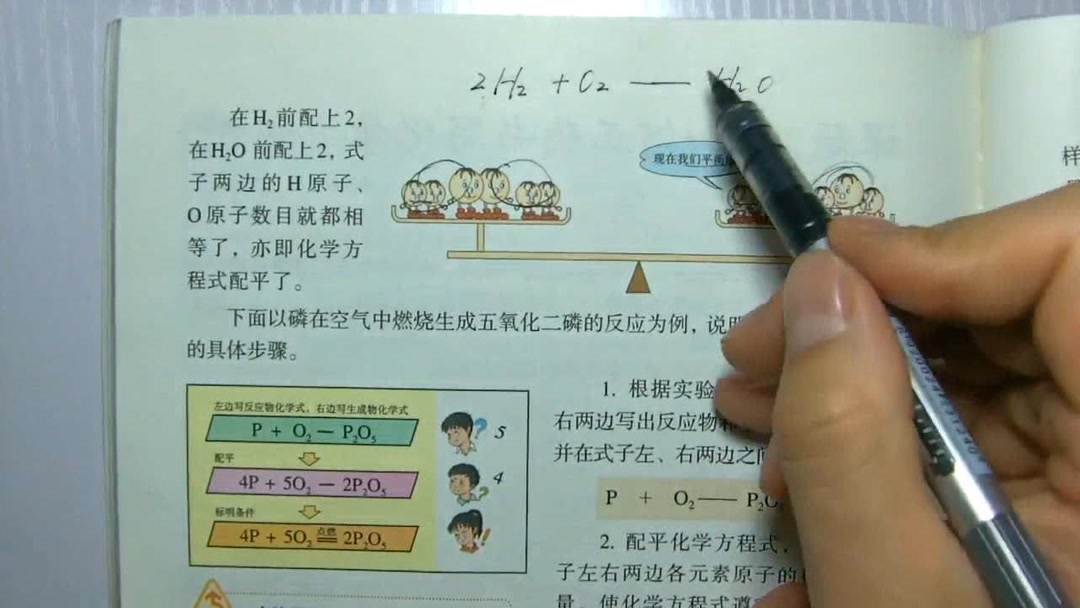 2H₂ + O₂ —— H₂O
在H₂前配上2，
在H₂O 前配上2，式
子两边的H原子、
O原子数目就都相
等了，亦即化学方
程式配平了。
现在我们平衡
下面以磷在空气中燃烧生成五氧化二磷的反应为例，说明
的具体步骤。
左边写反应物化学式，右边写生成物化学式
P + O₂ — P₂O₅
配平
4P + 5O₂ — 2P₂O₅
标明条件
点燃
4P + 5O₂ == 2P₂O₅
5
4
1. 根据实验
右两边写出反应物
并在式子左、右两边之间
P + O₂ —— P₂O
2. 配平化学方程式，
子左右两边各元素原子的
量，使化学方程式遵
样